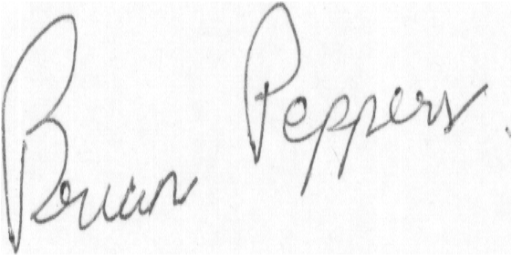 Brian Peppers.